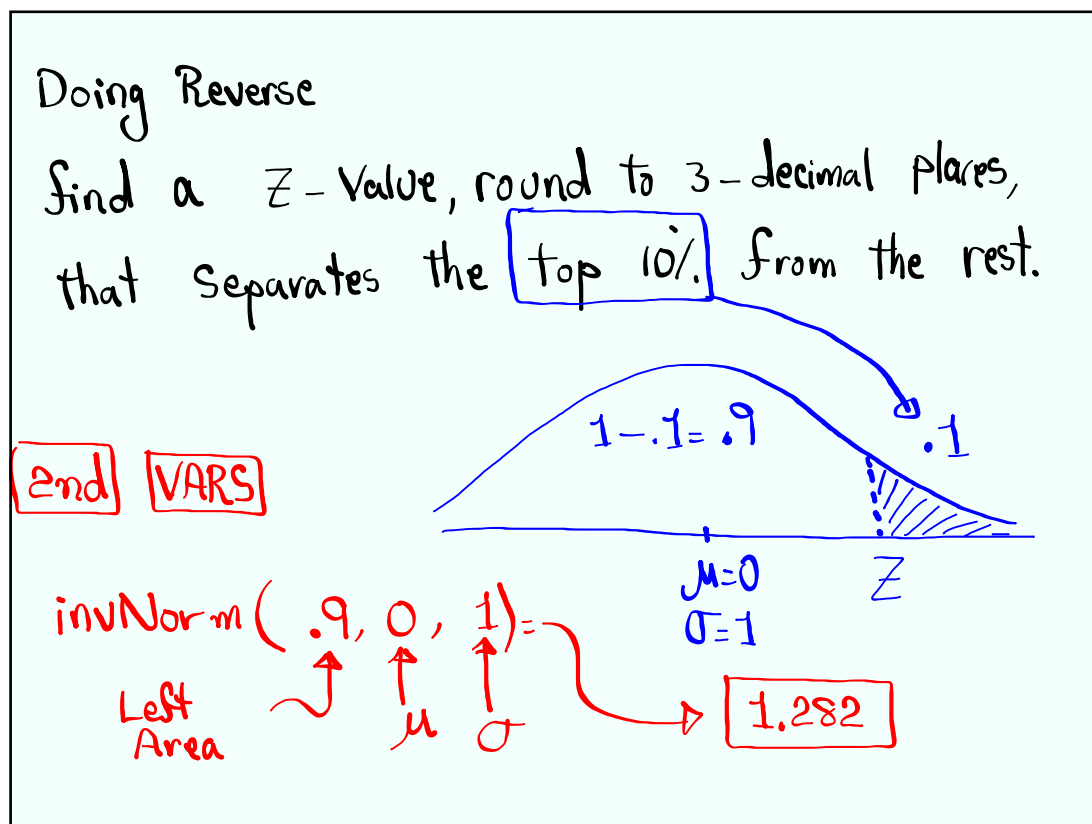 Doing Reverse
find a Z-Value, round to 3-decimal places,
that separates the top 10% from the rest.
1-.1=.9
.1
2nd VARS
μ=0
Z
σ=1
invNorm( .9, 0, 1)=
Left
Area
μ
σ
1.282